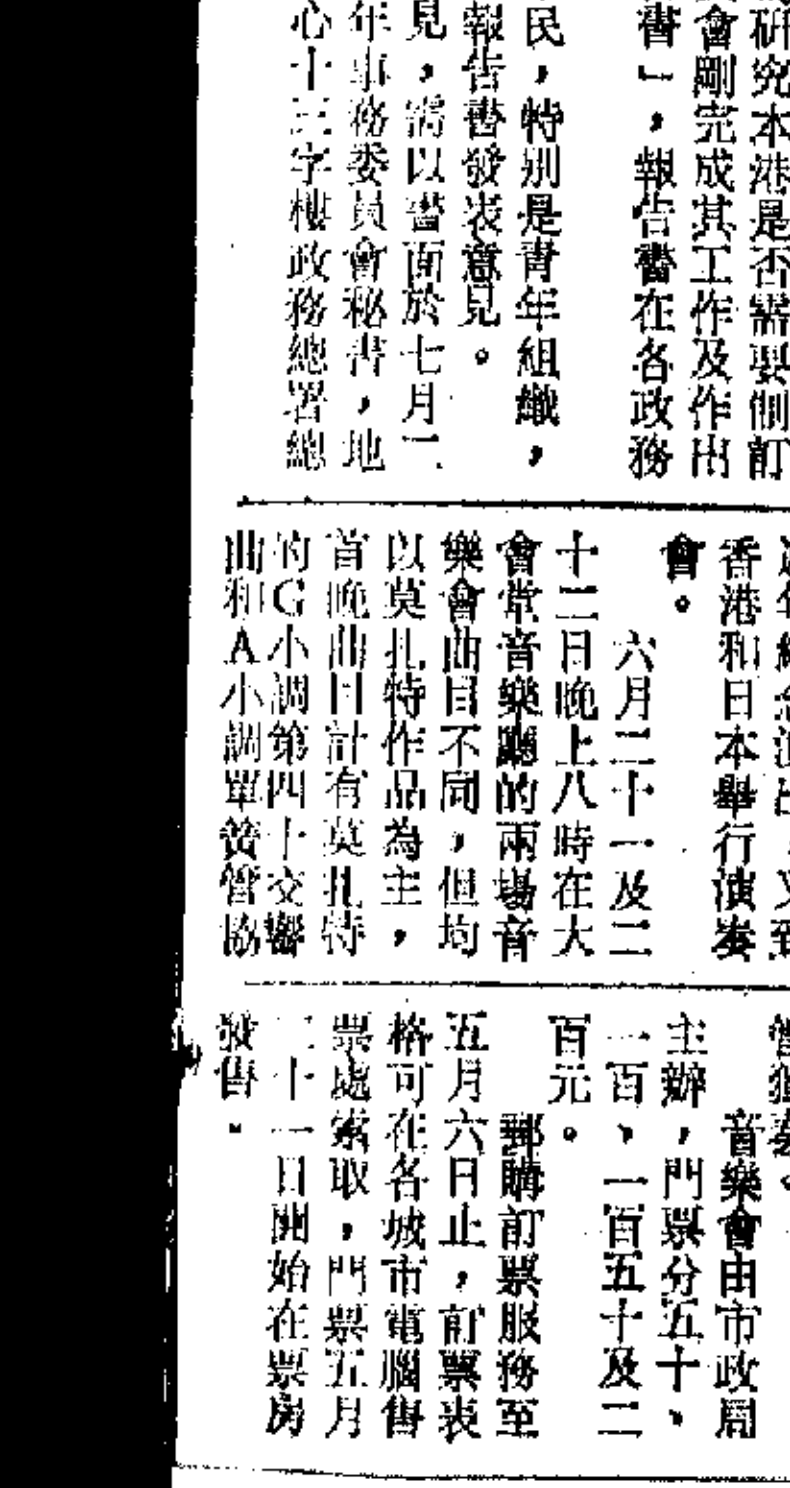 研究本港是否需要制訂
會剛完成其工作及作出
書」，報告書在各政務
民，特別是青年組織，
報告書發表意見。
見，需以書面於七月二
年事務委員會秘書，地
心十三字樓政務總署總
香港和日本舉行演奏
會。
六月二十一及二
十二日晚上八時在大
會堂音樂廳的兩場音
樂會曲目不同，但均
以莫扎特作品為主，
首晚曲目計有莫扎特
的G小調第四十交響
曲和A小調單簧管協
音樂會由市政局
主辦，門票分五十、
一百、一百五十及二
百元。
郵購訂票服務至
五月六日止，訂票表
格可在各城市電腦售
票處索取，門票五月
二十一日開始在票房
發售。